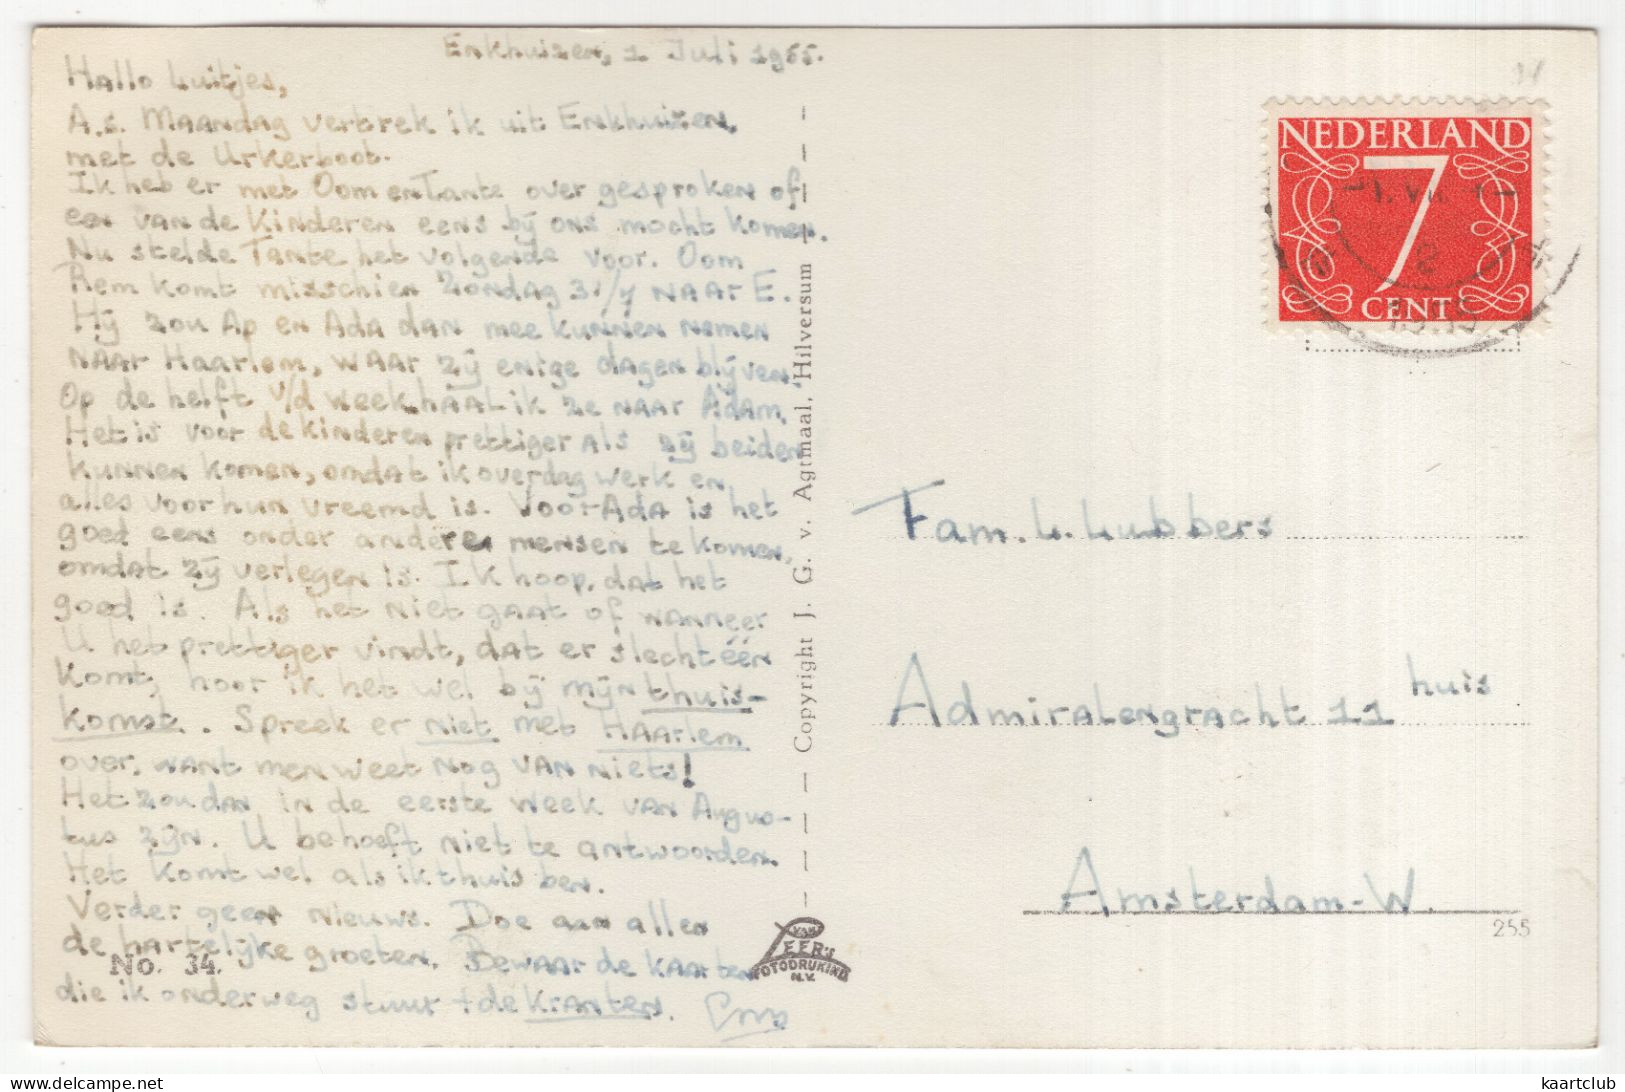 Enkhuizen, 1 Juli 1955.
Hallo Luitjes,
A.s. Maandag vertrek ik uit Enkhuizen,
met de Urkerboot.
Ik heb er met Oom en Tante over gesproken of
een van de Kinderen eens bij ons mocht komen.
Nu stelde Tante het volgende voor. Oom
Rem komt misschien Zondag 31/7 naar E.
Hij zou Ap en Ada dan mee kunnen nemen
naar Haarlem, waar zij enige dagen blijven.
Op de helft v/d week haal ik ze naar Adam.
Het is voor de kinderen prettiger als zij beiden
kunnen komen, omdat ik overdag werk en
alles voor hun vreemd is. Voor Ada is het
goed eens onder andere mensen te komen,
omdat zij verlegen is. Ik hoop, dat het
goed is. Als het niet gaat of wanneer
U het prettiger vindt, dat er slecht één
komt, hoor ik het wel bij mijn thuis-
komst. Spreek er niet met Haarlem
over, want men weet nog van niets!
Het zou dan in de eerste week van Augus-
tus zijn. U behoeft niet te antwoorden.
Het komt wel als ik thuis ben.
Verder geen nieuws. Doe aan allen
de hartelijke groeten. Bewaar de kaarten
die ik onderweg stuur + de kranten.
No. 34.
Copyright J. G. v. Agtmaal, Hilversum
VAN
LEER'S
FOTODRUKIND
N.V.
NEDERLAND
7
CENT
Fam. L. Lubbers
Admiralengracht 11 huis
Amsterdam-W.
255
kaartclub